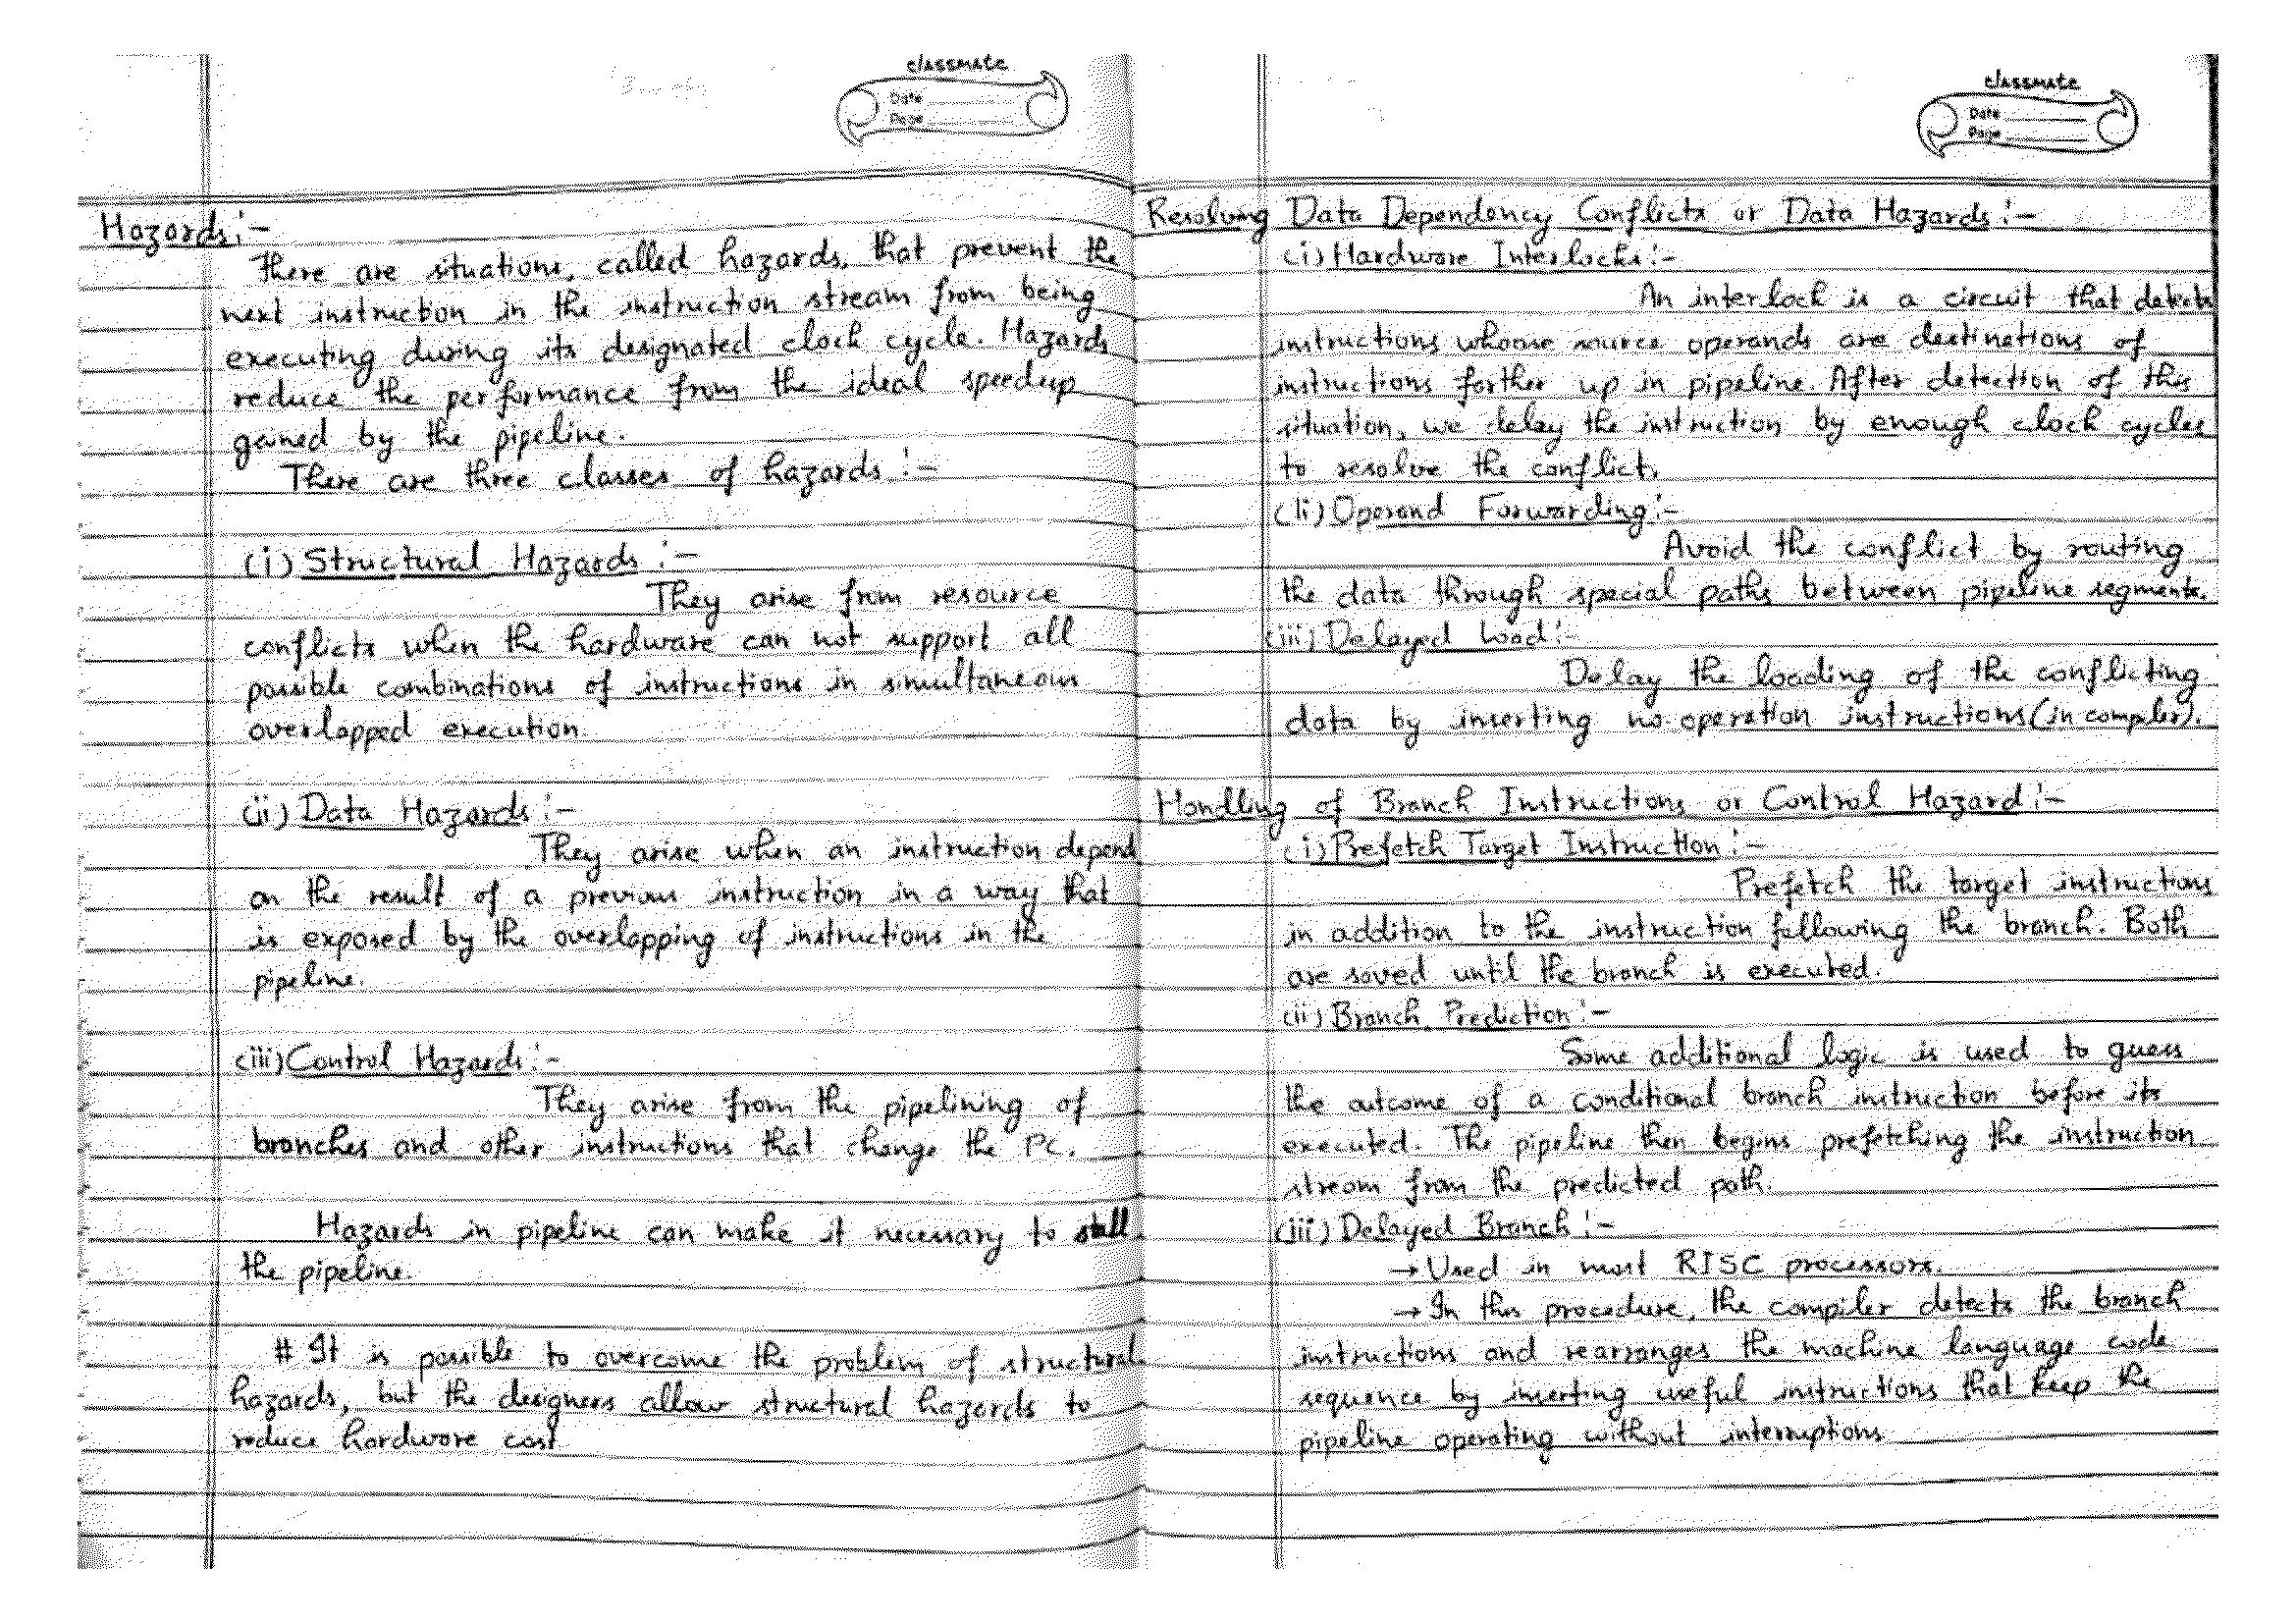 classmate
Date
Page
Hazards:-
There are situations, called hazards, that prevent the
next instruction in the instruction stream from being
executing during its designated clock cycle. Hazards
reduce the performance from the ideal speedup
gained by the pipeline.
There are three classes of hazards :-
(i) Structural Hazards :-
They arise from resource
conflicts when the hardware can not support all
possible combinations of instructions in simultaneous
overlapped execution.
(ii) Data Hazards :-
They arise when an instruction depend
on the result of a previous instruction in a way that
is exposed by the overlapping of instructions in the
pipeline.
(iii) Control Hazards :-
They arise from the pipelining of
branches and other instructions that change the PC.
Hazards in pipeline can make it necessary to stall
the pipeline.
# It is possible to overcome the problem of structural
hazards, but the designers allow structural hazards to
reduce hardware cost.
classmate
Date
Page
Resolving Data Dependency Conflicts or Data Hazards :-
(i) Hardware Interlocks :-
An interlock is a circuit that detects
instructions whoose source operands are destinations of
instructions farther up in pipeline. After detection of this
situation, we delay the instruction by enough clock cycles
to resolve the conflict.
(ii) Operand Forwarding :-
Avoid the conflict by routing
the data through special paths between pipeline segments.
(iii) Delayed Load :-
Delay the loading of the conflicting
data by inserting no-operation instructions (in compiler).
Handling of Branch Instructions or Control Hazard :-
(i) Prefetch Target Instruction :-
Prefetch the target instructions
in addition to the instruction following the branch. Both
are saved until the branch is executed.
(ii) Branch Prediction :-
Some additional logic is used to guess
the outcome of a conditional branch instruction before its
executed. The pipeline then begins prefetching the instruction
stream from the predicted path.
(iii) Delayed Branch :-
→ Used in most RISC processors.
→ In this procedure, the compiler detects the branch
instructions and rearranges the machine language code
sequence by inserting useful instructions that keep the
pipeline operating without interruptions